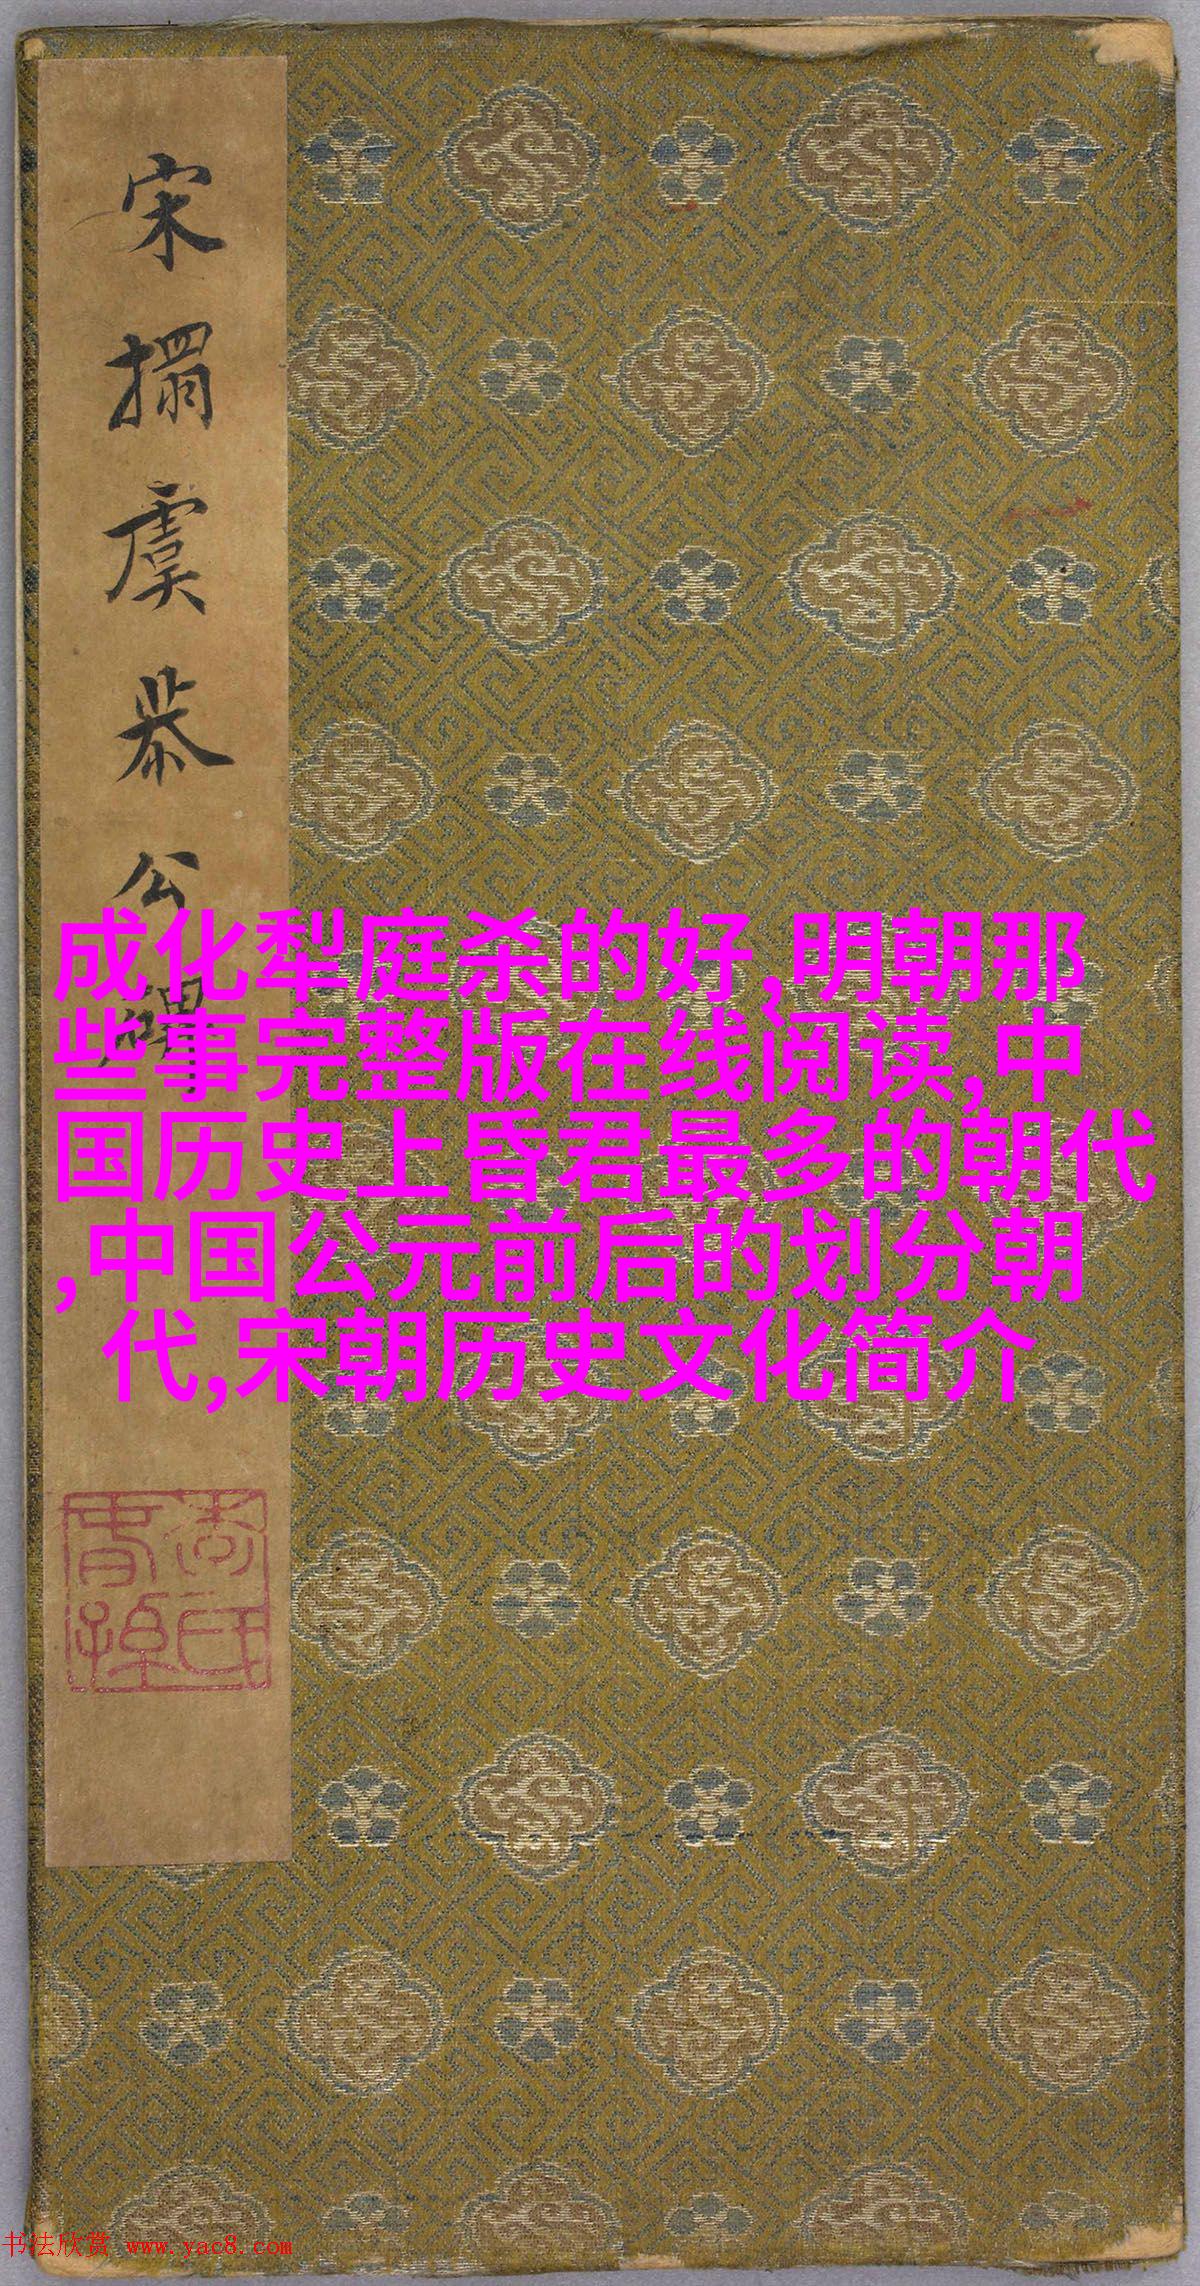 宋搨虞恭公碑
成化犁庭杀的好,明朝那
些事完整版在线阅读,中
国历史上昏君最多的朝代
,中国公元前后的划分朝
代,宋朝历史文化简介
书法欣赏 www.yac8.com